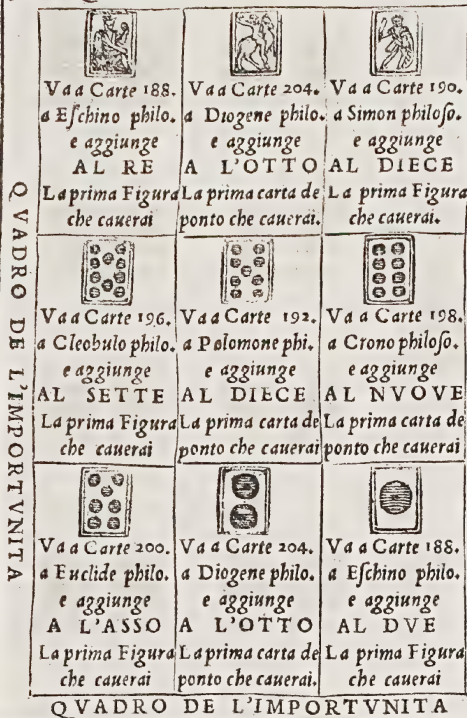 Va a Carte 188.
a Eſchino philo.
e aggiunge
AL RE
La prima Figura
che cauerai
Va a Carte 204.
a Diogene philo.
e aggiunge
A L'OTTO
La prima carta de
ponto che cauerai.
Va a Carte 190.
a Simon philoſo.
e aggiunge
AL DIECE
La prima Figura
che cauerai.
QVADRO DE L'IMPORTVNITA
Va a Carte 196.
a Cleobulo philo.
e aggiunge
AL SETTE
La prima Figura
che cauerai
Va a Carte 192.
a Polomone phi.
e aggiunge
AL DIECE
La prima carta de
ponto che cauerai
Va a Carte 198.
a Crono philoſo.
e aggiunge
AL NVOVE
La prima carta de
ponto che cauerai
Va a Carte 200.
a Euclide philo.
e aggiunge
A L'ASSO
La prima Figura
che cauerai
Va a Carte 204.
a Diogene philo.
e aggiunge
A L'OTTO
La prima carta de
ponto che cauerai.
Va a Carte 188.
a Eſchino philo.
e aggiunge
AL DVE
La prima Figura
che cauerai
QVADRO DE L'IMPORTVNITA